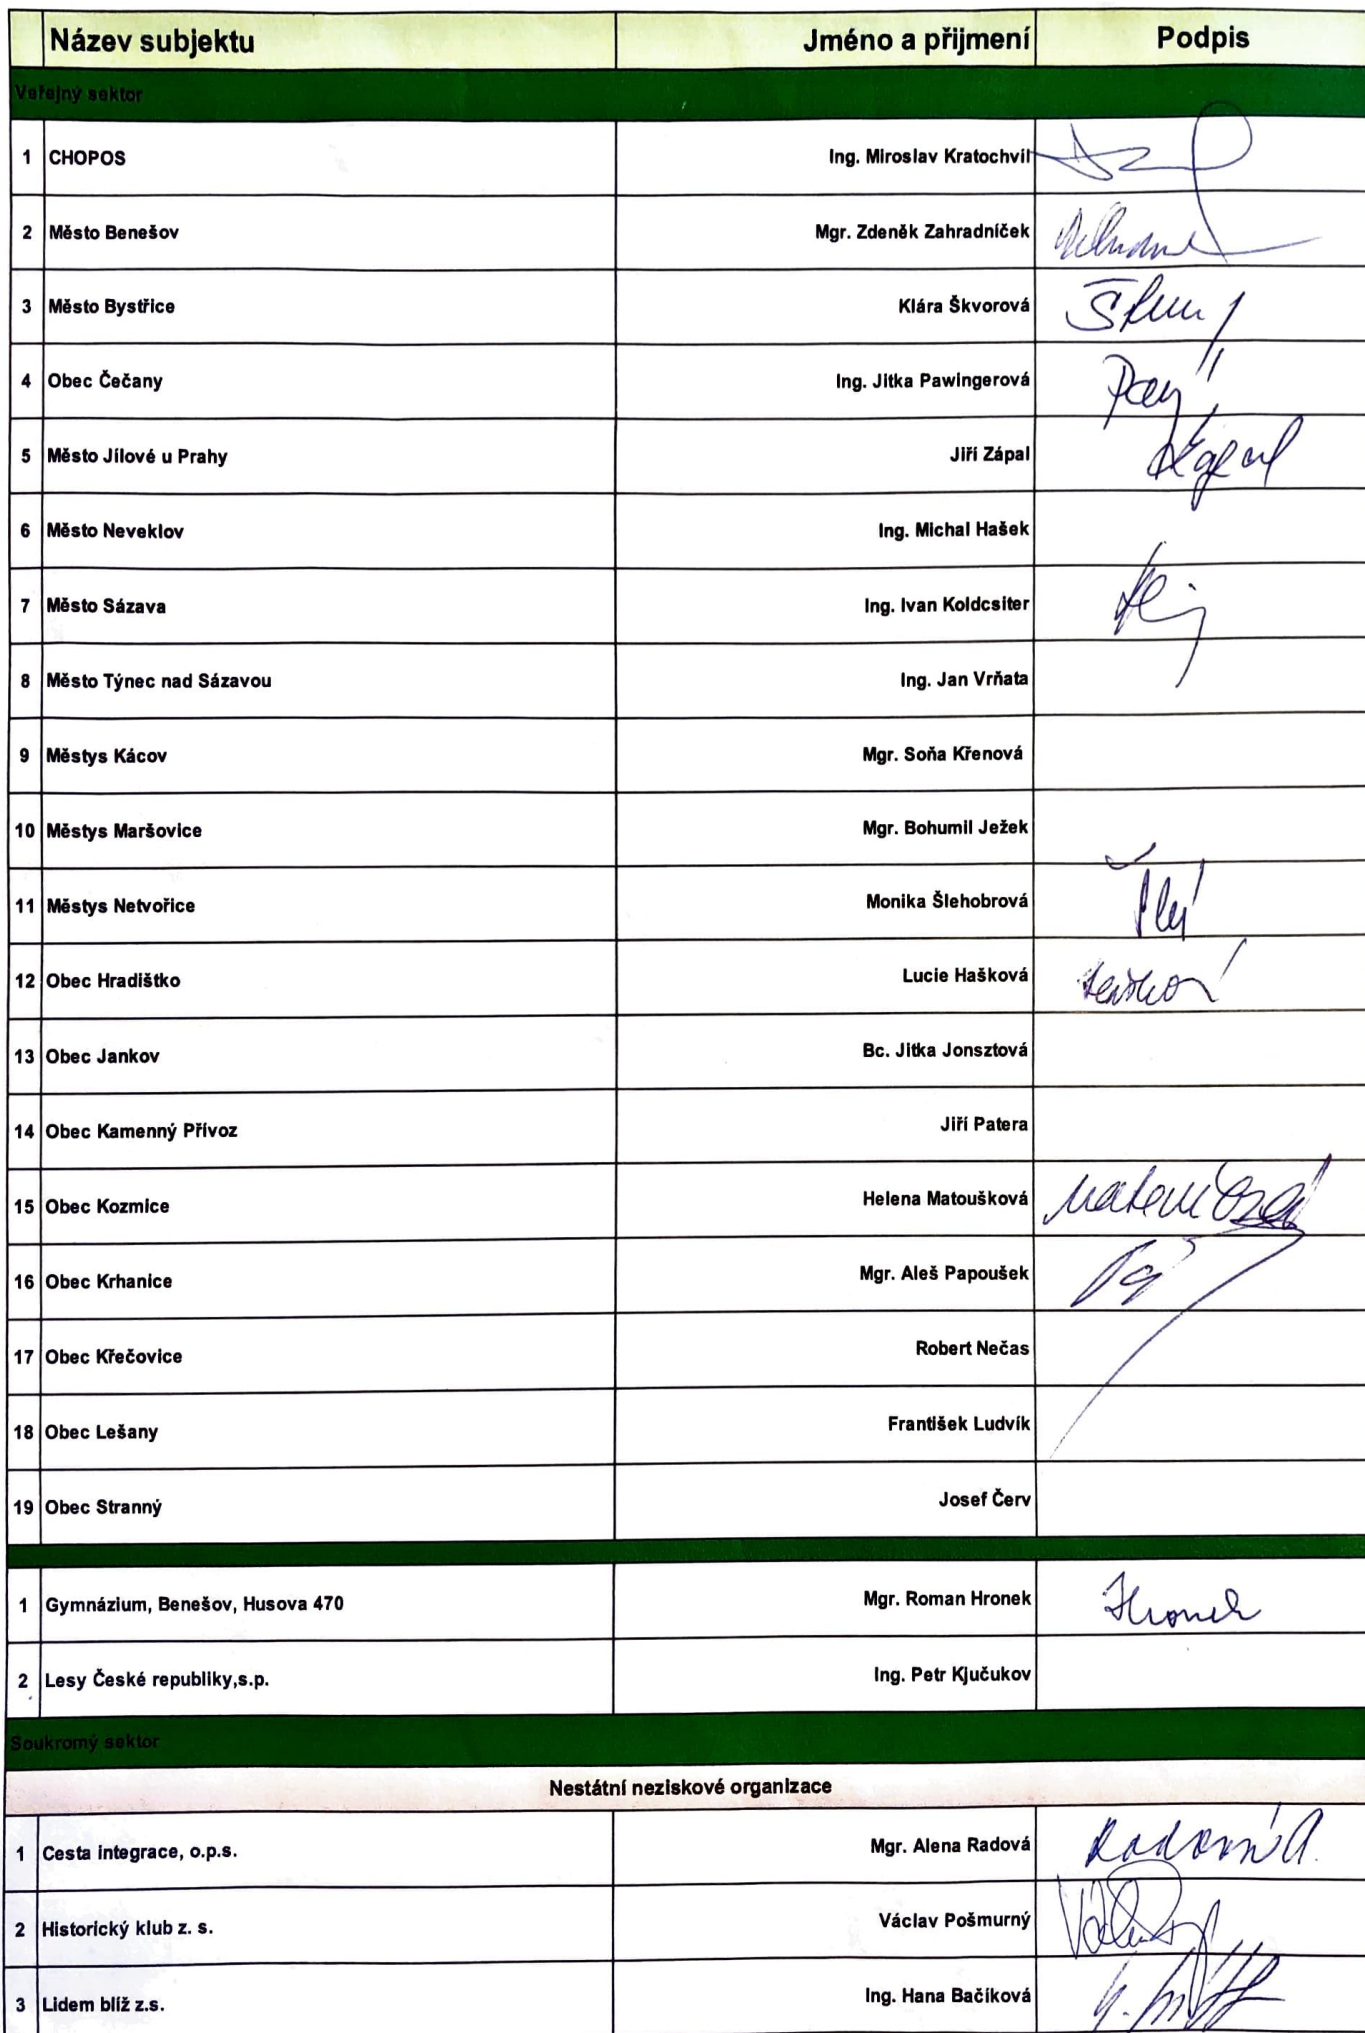 Název subjektu Jméno a přijmení Podpis
Veřejný sektor
1 CHOPOS Ing. Miroslav Kratochvíl
2 Město Benešov Mgr. Zdeněk Zahradníček
3 Město Bystřice Klára Škvorová
4 Obec Čečany Ing. Jitka Pawingerová
5 Město Jílové u Prahy Jiří Zápal
6 Město Neveklov Ing. Michal Hašek
7 Město Sázava Ing. Ivan Koldcsiter
8 Město Týnec nad Sázavou Ing. Jan Vrňata
9 Městys Kácov Mgr. Soňa Křenová
10 Městys Maršovice Mgr. Bohumil Ježek
11 Městys Netvořice Monika Šlehobrová
12 Obec Hradištko Lucie Hašková
13 Obec Jankov Bc. Jitka Jonsztová
14 Obec Kamenný Přívoz Jiří Patera
15 Obec Kozmice Helena Matoušková
16 Obec Krhanice Mgr. Aleš Papoušek
17 Obec Křečovice Robert Nečas
18 Obec Lešany František Ludvík
19 Obec Stranný Josef Červ
1 Gymnázium, Benešov, Husova 470 Mgr. Roman Hronek Hronek
2 Lesy České republiky,s.p. Ing. Petr Kjučukov
Soukromý sektor
Nestátní neziskové organizace
1 Cesta integrace, o.p.s. Mgr. Alena Radová
2 Historický klub z. s. Václav Pošmurný
3 Lidem blíž z.s. Ing. Hana Bačíková